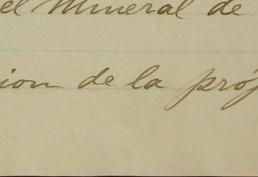 el Mineral de
ion de la próp